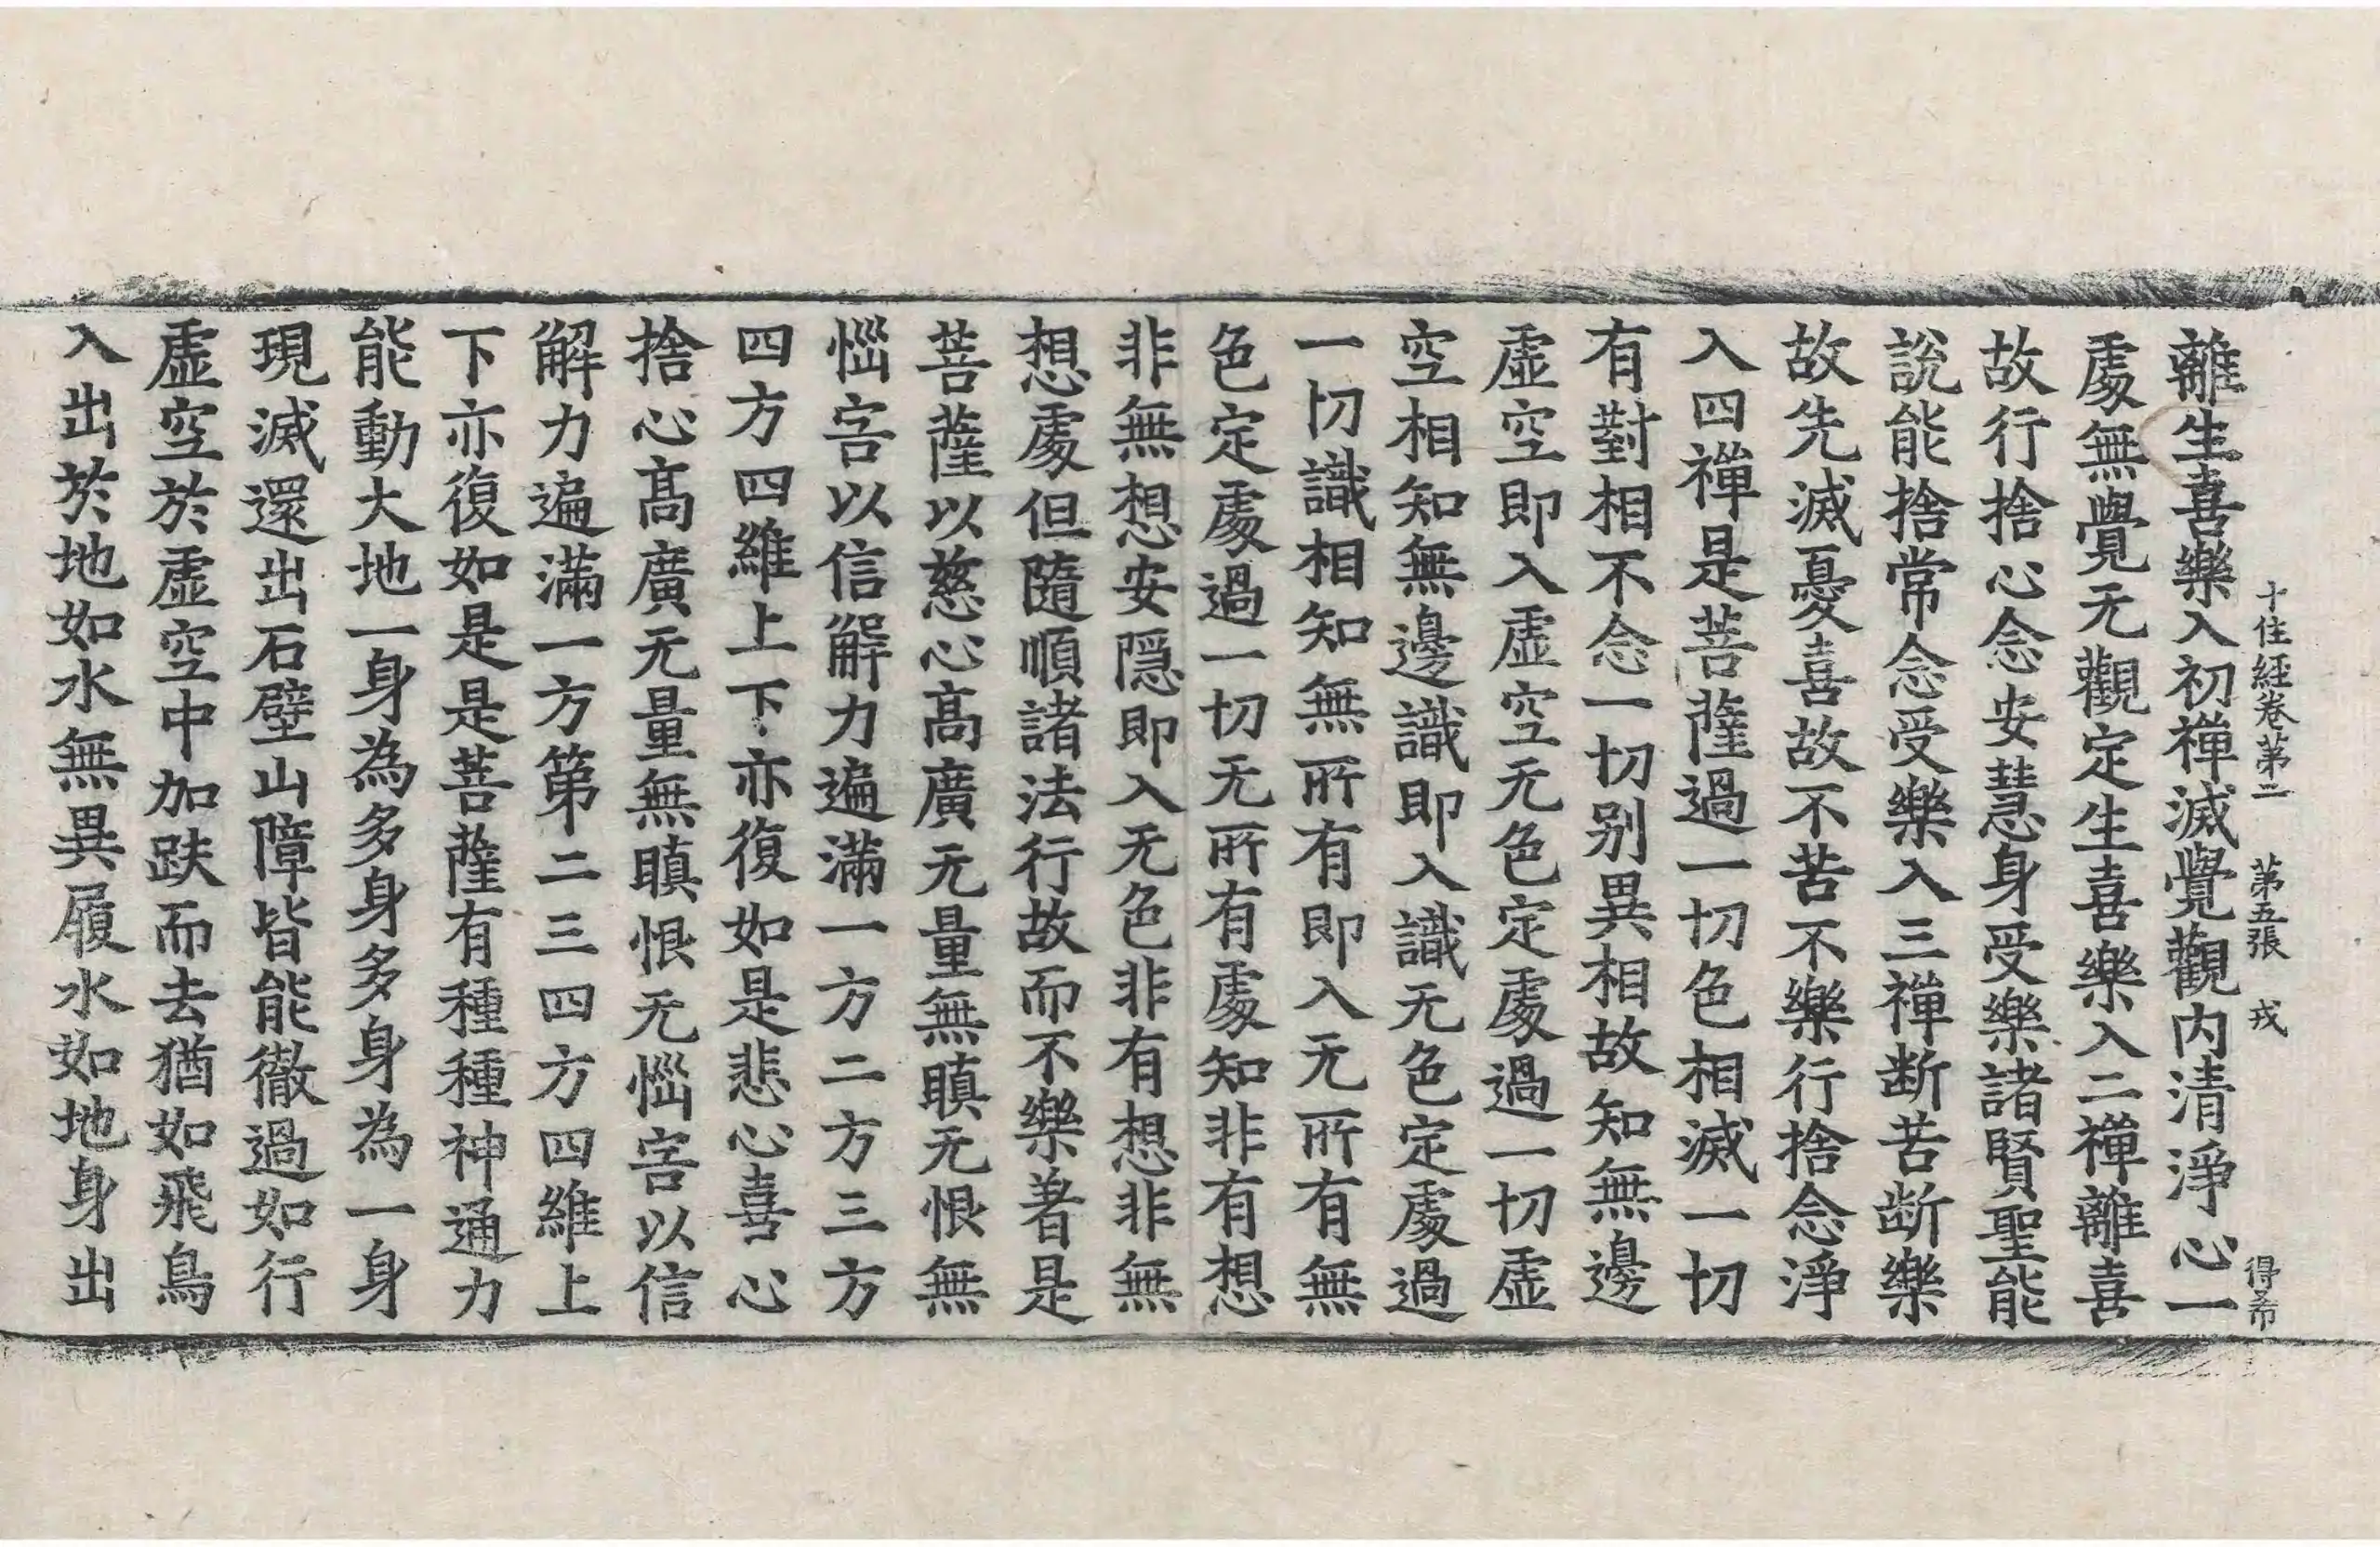 十住經卷第二 第五張 戎 得希
離生喜樂入初禪滅覺觀内清淨心一
處無覺无觀定生喜樂入二禪離喜
故行捨心念安慧身受樂諸賢聖能
說能捨常念受樂入三禪断苦断樂
故先滅憂喜故不苦不樂行捨念淨
入四禪是菩薩過一切色相滅一切
有對相不念一切别異相故知無邊
虛空即入虛空无色定處過一切虛
空相知無邊識即入識无色定處過
一切識相知無所有即入无所有無
色定處過一切无所有處知非有想
非無想安隱即入无色非有想非無
想處但隨順諸法行故而不樂著是
菩薩以慈心高廣无量無瞋无恨無
惱害以信解力遍滿一方二方三方
四方四維上下亦復如是悲心喜心
捨心高廣无量無瞋恨无惱害以信
解力遍滿一方第二三四方四維上
下亦復如是是菩薩有種種神通力
能動大地一身為多身多身為一身
現滅還出石壁山障皆能徹過如行
虛空於虛空中加趺而去猶如飛鳥
入出於地如水無異履水如地身出